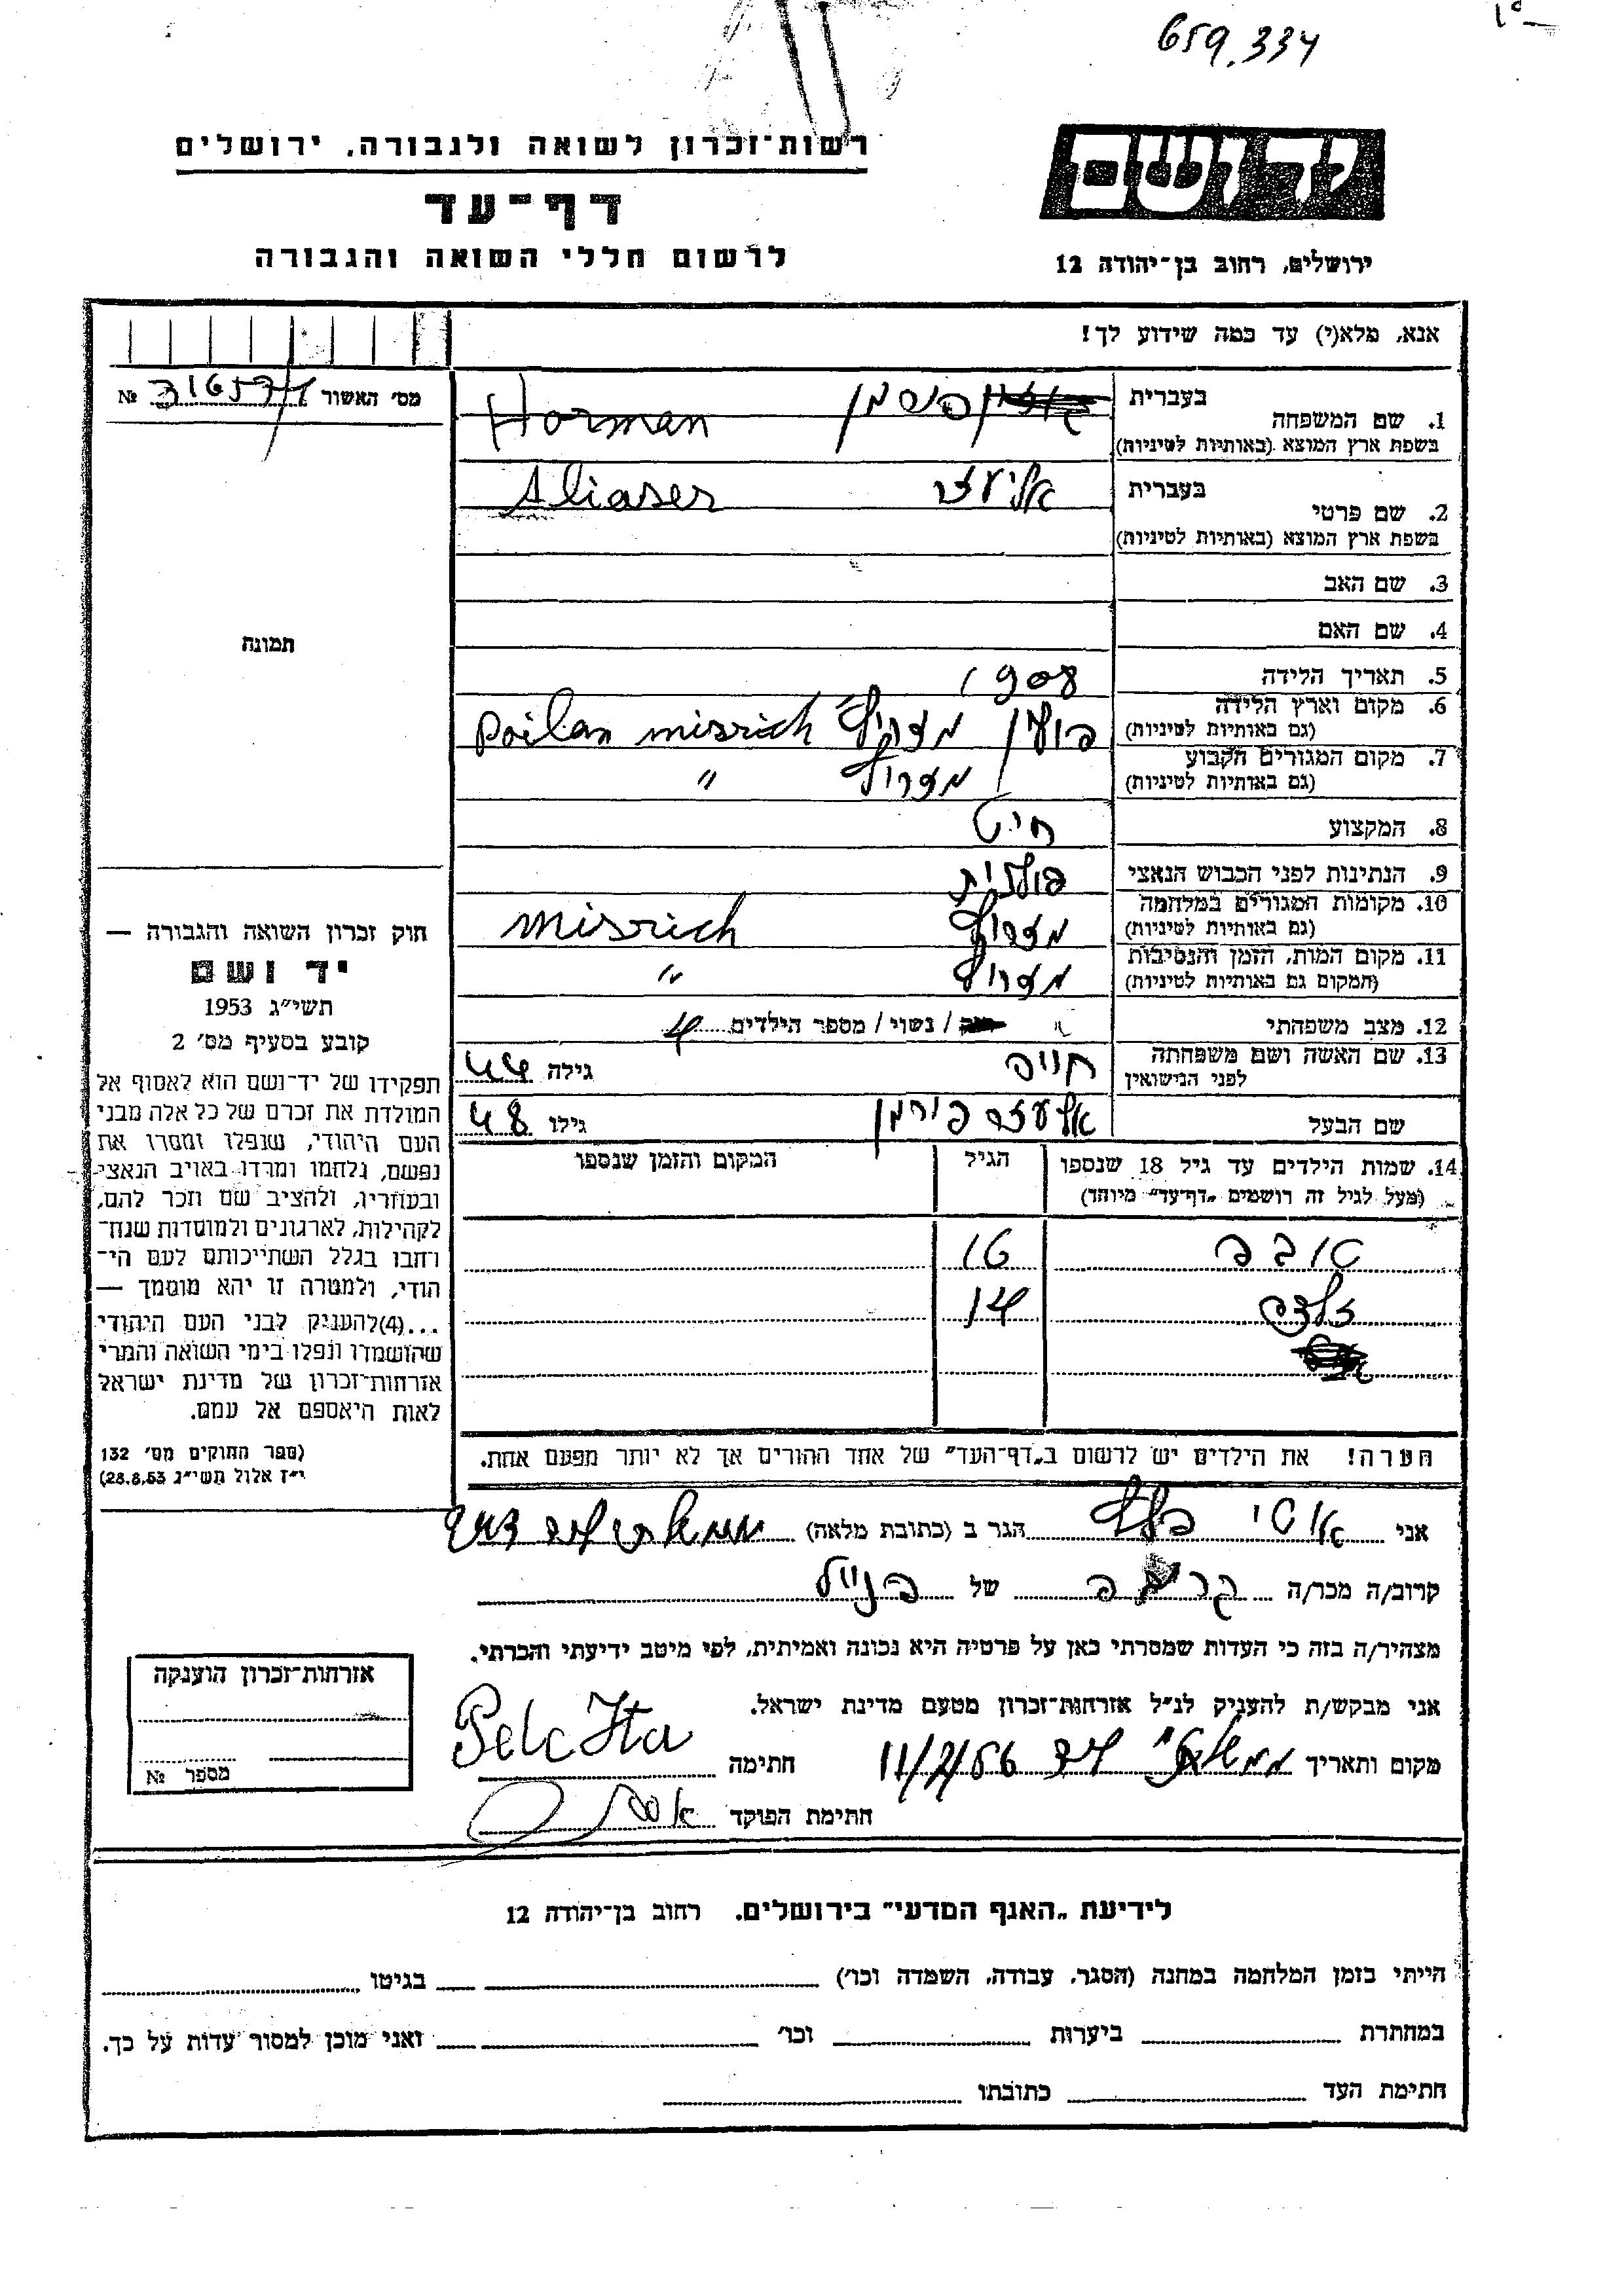 659.334
רשות־זכרון לשואה ולגבורה, ירושלים
דף־עד
לרשום חללי השואה והגבורה
יד ושם
ירושלים, רחוב בן־יהודה 12
אנא, מלא(י) עד כמה שידוע לך!
מס׳ האשור № 316571
1. שם המשפחה
בעברית
בשפת ארץ המוצא (באותיות לטיניות)
Horman
2. שם פרטי
בעברית אליעזר
בשפת ארץ המוצא (באותיות לטיניות)
Aliaser
3. שם האב
4. שם האם
תמונה
5. תאריך הלידה 1908
6. מקום וארץ הלידה
(גם באותיות לטיניות)
פולין Poilan misrich
7. מקום המגורים הקבוע
(גם באותיות לטיניות)
"
8. המקצוע חייט
9. הנתינות לפני הכבוש הנאצי פולנית
10. מקומות המגורים במלחמה
(גם באותיות לטיניות)
misrich
11. מקום המות, הזמן והנסיבות
(המקום גם באותיות לטיניות)
"
12. מצב משפחתי / נשוי / מספר הילדים 4
13. שם האשה ושם משפחתה
לפני הנישואין
גילה 44
שם הבעל אלעזר הורמן גילו 48
14. שמות הילדים עד גיל 18 שנספו
(מעל לגיל זה רושמים „דף־עד" מיוחד)
הגיל
המקום והזמן שנספו
טובה 16
זלדה 14
הערה! את הילדים יש לרשום ב„דף־העד" של אחד ההורים אך לא יותר מפעם אחת.
חוק זכרון השואה והגבורה —
יד ושם
תשי״ג 1953
קובע בסעיף מס׳ 2
תפקידו של יד־ושם הוא לאסוף אל
המולדת את זכרם של כל אלה מבני
העם היהודי, שנפלו ומסרו את
נפשם, נלחמו ומרדו באויב הנאצי
ובעוזריו, ולהציב שם וזכר להם,
לקהילות, לארגונים ולמוסדות שנח־
רבו בגלל השתייכותם לעם הי־
הודי, ולמטרה זו יהא מוסמך —
...(4)להעניק לבני העם היהודי
שהושמדו ונפלו בימי השואה והמרי
אזרחות־זכרון של מדינת ישראל
לאות היאספם אל עמם.
(ספר החוקים מס׳ 132
י״ז אלול תשי״ג 28.8.53)
אני הגר ב (כתובת מלאה)
קרוב/ה מכר/ה קרובה של
מצהיר/ה בזה כי העדות שמסרתי כאן על פרטיה היא נכונה ואמיתית, לפי מיטב ידיעתי והכרתי.
אני מבקש/ת להעניק לנ״ל אזרחות־זכרון מטעם מדינת ישראל.
מקום ותאריך 11/2/56 חתימה Pelc Ita
חתימת הפוקד
אזרחות־זכרון הוענקה
מספר №
לידיעת „האגף המדעי" בירושלים, רחוב בן־יהודה 12
הייתי בזמן המלחמה במחנה (הסגר, עבודה, השמדה וכו׳) בגיטו
במחתרת ביערות וכו׳ ואני מוכן למסור עדות על כך.
חתימת העד כתובתו